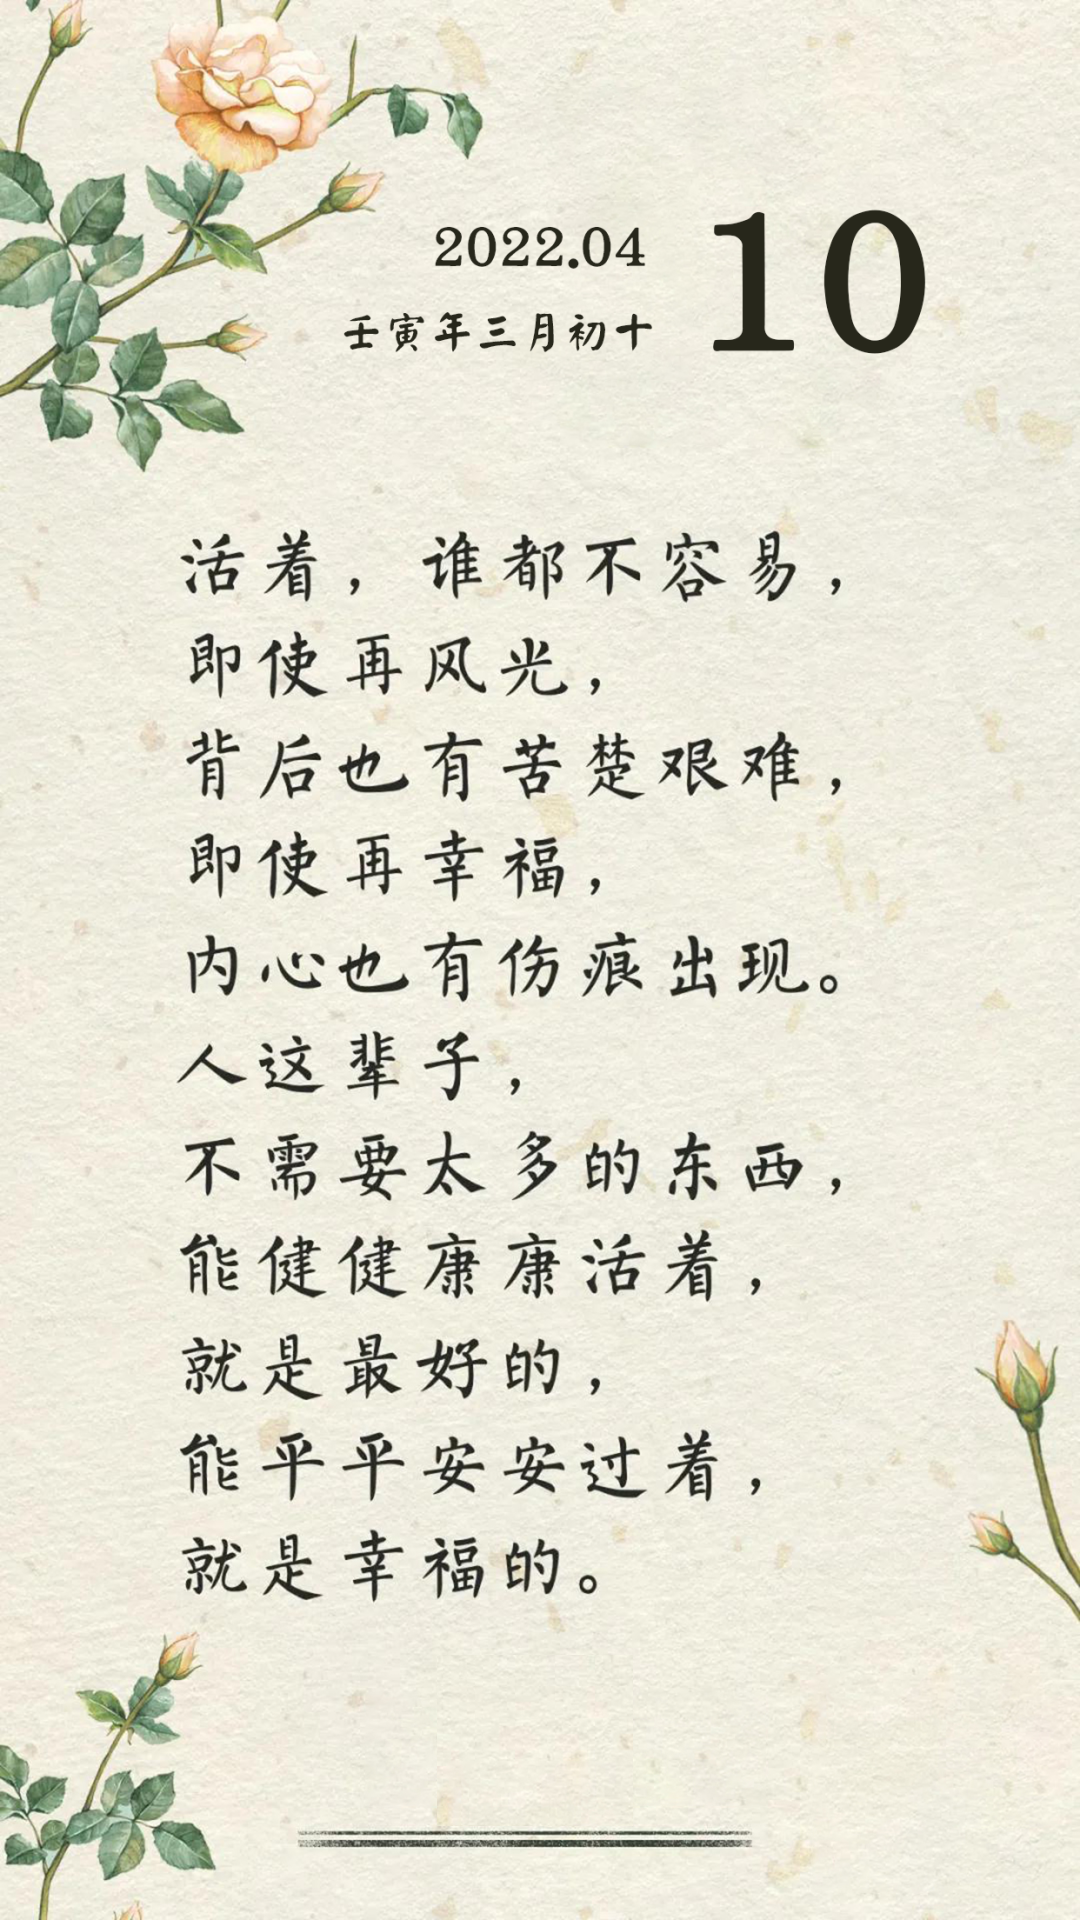 2022.04
10
壬寅年三月初十
活着，谁都不容易，
即使再风光，
背后也有苦楚艰难，
即使再幸福，
内心也有伤痕出现。
人这辈子，
不需要太多的东西，
能健健康康活着，
就是最好的，
能平平安安过着，
就是幸福的。